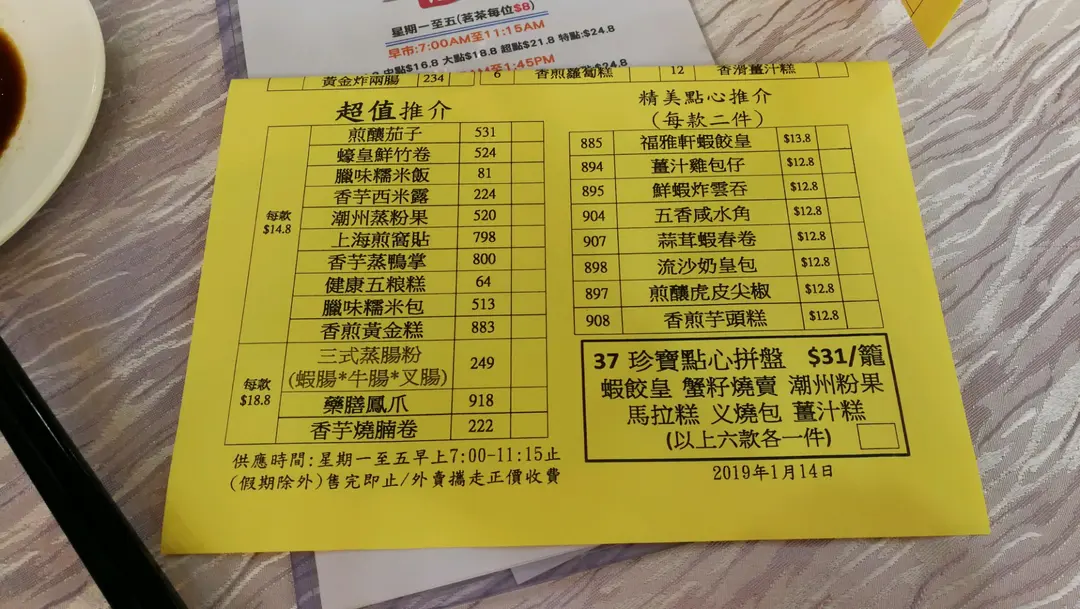 星期一至五(茗茶每位$8)
早市:7:00AM至11:15AM
中點$16.8 大點$18.8 超點$21.8 特點:$24.8
至1:45PM
黃金炸兩腸 234
6 香煎蘿蔔糕 12 香滑薑汁糕
超值推介
每款 $14.8
煎釀茄子 531
蠔皇鮮竹卷 524
臘味糯米飯 81
香芋西米露 224
潮州蒸粉果 520
上海煎窩貼 798
香芋蒸鴨掌 800
健康五粮糕 64
臘味糯米包 513
香煎黃金糕 883
每款 $18.8
三式蒸腸粉 249
(蝦腸*牛腸*叉腸)
藥膳鳳爪 918
香芋燒腩卷 222
供應時間:星期一至五早上7:00-11:15止
(假期除外)售完即止/外賣攜走正價收費
精美點心推介
(每款二件)
885 福雅軒蝦餃皇 $13.8
894 薑汁雞包仔 $12.8
895 鮮蝦炸雲吞 $12.8
904 五香咸水角 $12.8
907 蒜茸蝦春卷 $12.8
898 流沙奶皇包 $12.8
897 煎釀虎皮尖椒 $12.8
908 香煎芋頭糕 $12.8
37 珍寶點心拼盤 $31/籠
蝦餃皇 蟹籽燒賣 潮州粉果
馬拉糕 义燒包 薑汁糕
(以上六款各一件)
2019年1月14日